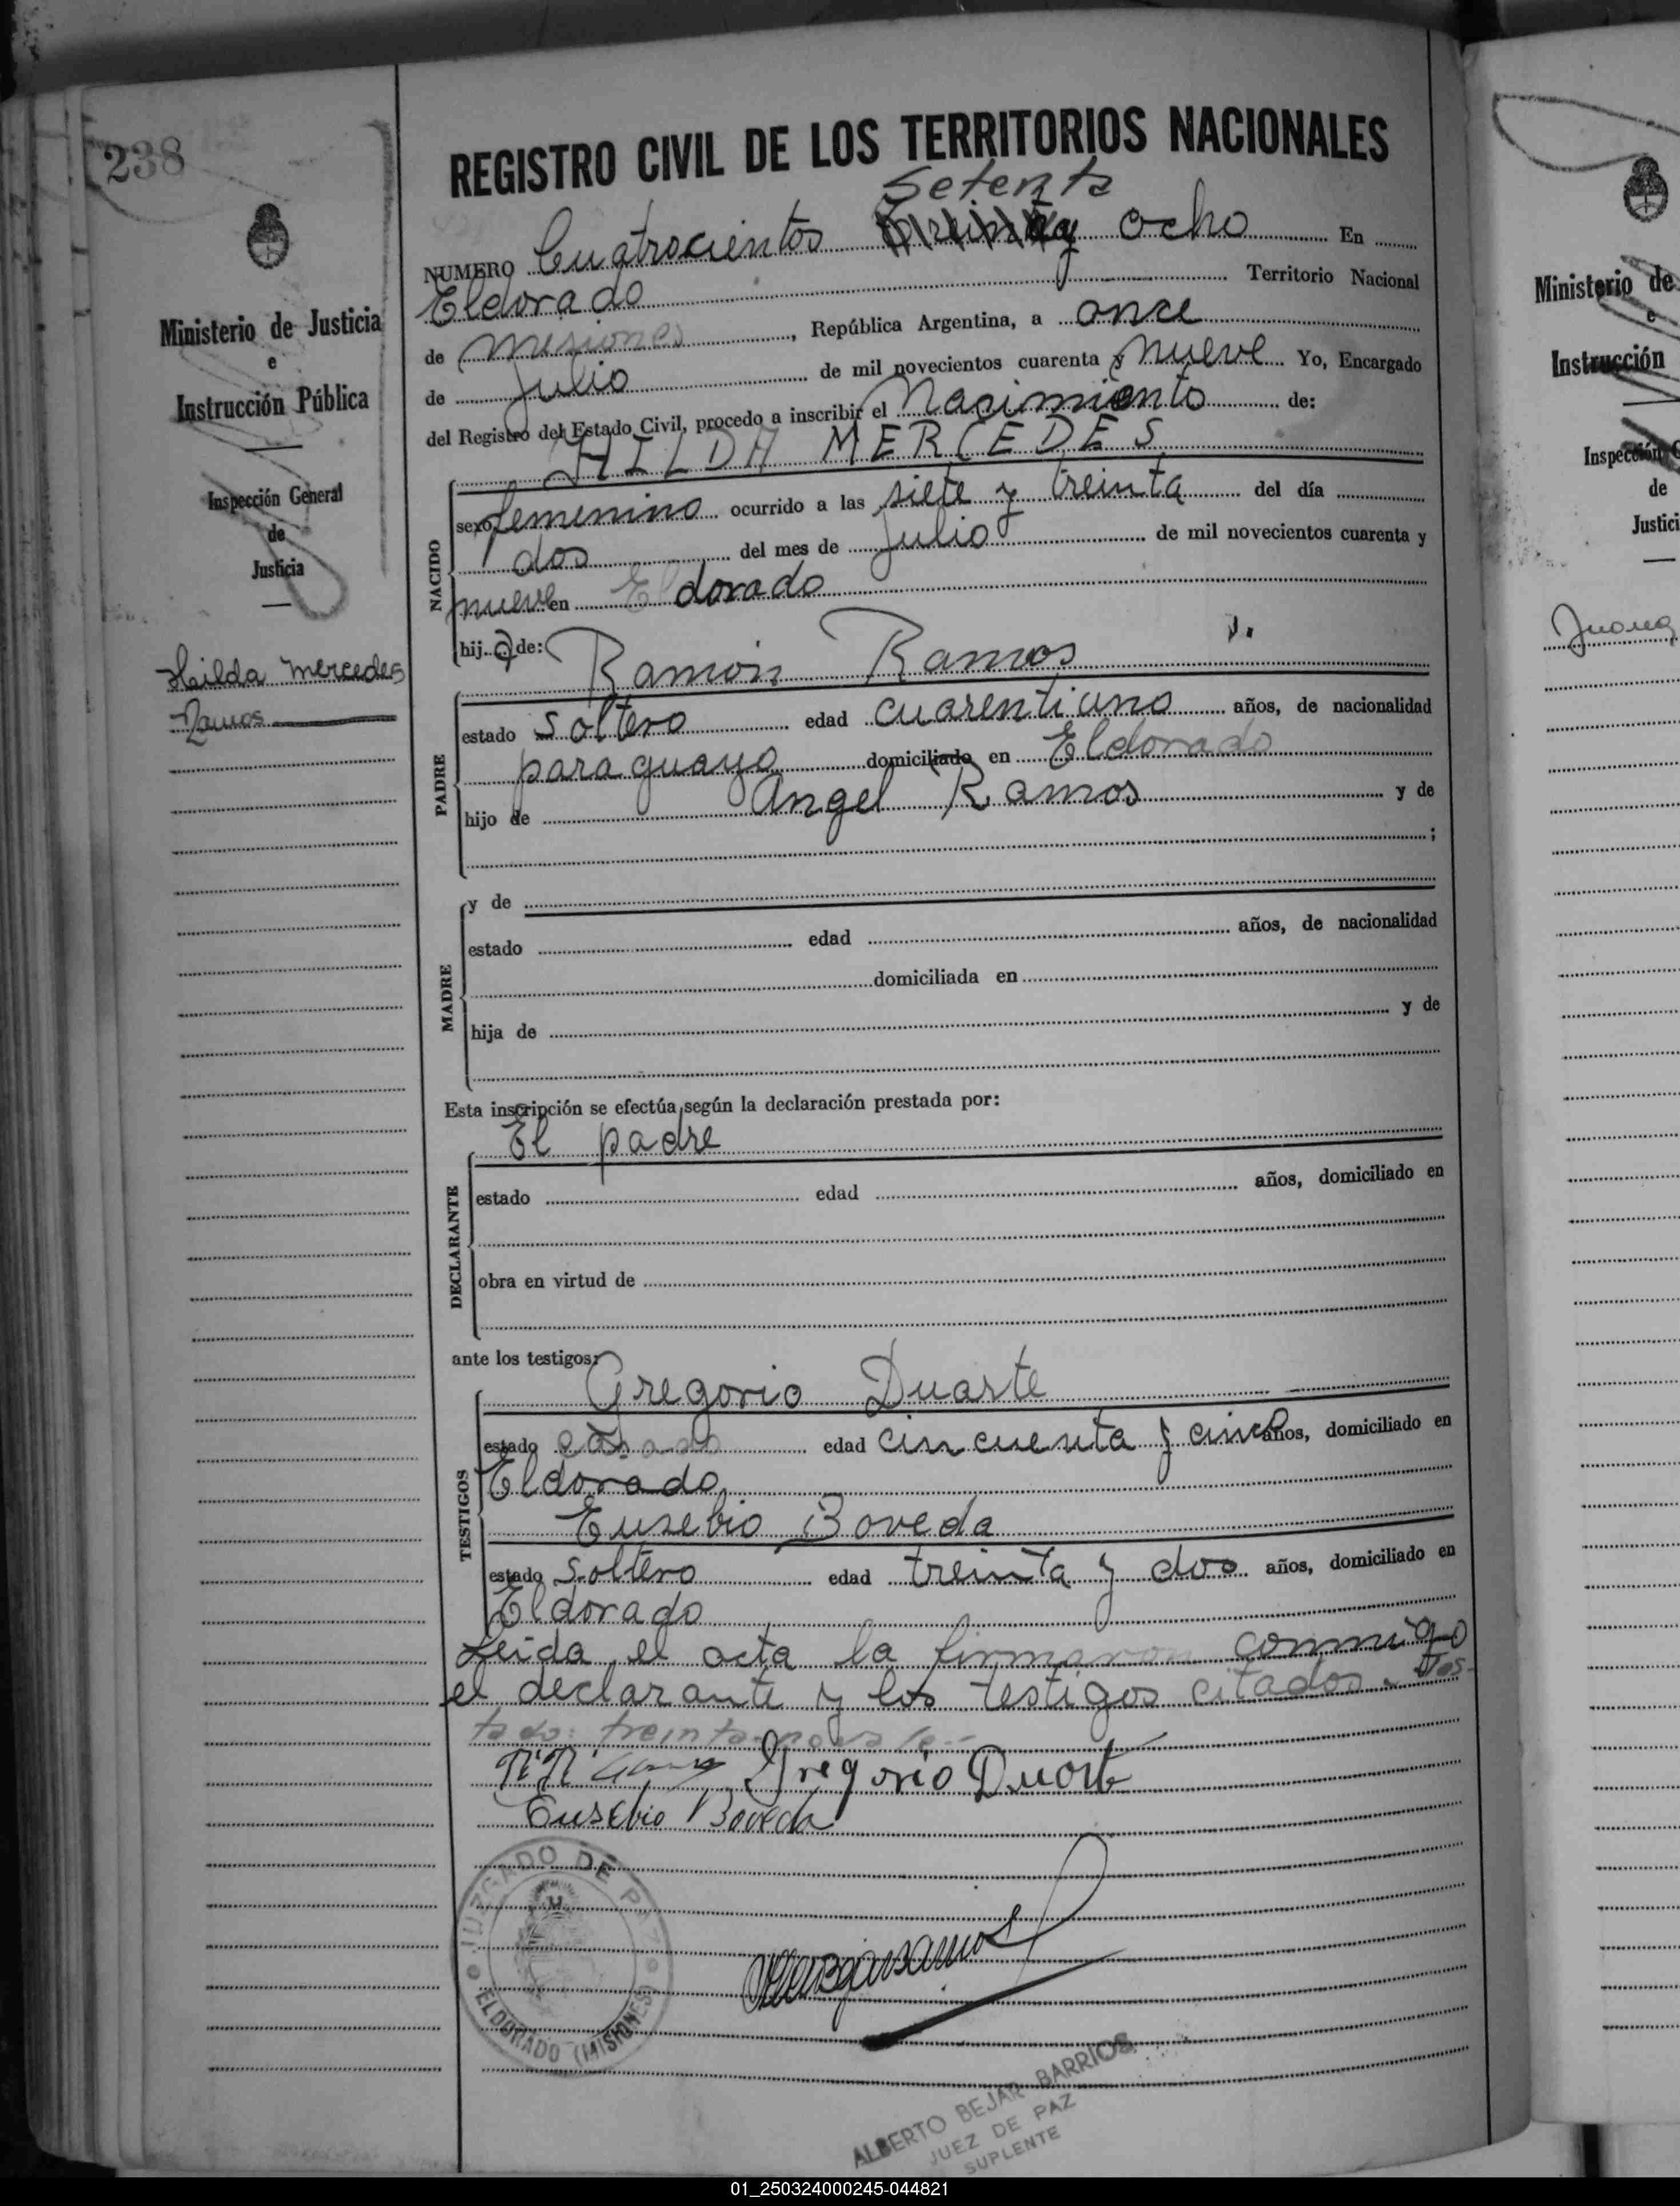 238
REGISTRO CIVIL DE LOS TERRITORIOS NACIONALES
Setenta
NUMERO Cuatrocientos treinta y ocho En
Eldorado Territorio Nacional
de misiones, República Argentina, a once
de Julio de mil novecientos cuarenta y nueve Yo, Encargado
del Registro del Estado Civil, procedo a inscribir el Nacimiento de:
HILDA MERCEDES
NACIDO
sexo femenino ocurrido a las siete y treinta del día
dos del mes de Julio de mil novecientos cuarenta y
nueve en Eldorado
hij a de:
Ramón Ramos
PADRE
estado soltero edad cuarentiuno años, de nacionalidad
paraguayo domiciliado en Eldorado
hijo de Angel Ramos y de
;
MADRE
y de
estado edad años, de nacionalidad
domiciliada en
hija de y de
Esta inscripción se efectúa según la declaración prestada por:
El padre
DECLARANTE
estado edad años, domiciliado en
obra en virtud de
ante los testigos:
Gregorio Duarte
TESTIGOS
estado casado edad cincuenta y cinco años, domiciliado en
Eldorado
Eusebio Boveda
estado soltero edad treinta y dos años, domiciliado en
Eldorado
Leida el acta la firmaron conmigo
el declarante y los testigos citados. Tes-
tado: treinta no vale.-
Gregorio Duarte
Eusebio Boveda
JUZGADO DE PAZ
ELDORADO (MISIONES)
ALBERTO BEJAR BARRIOS
JUEZ DE PAZ
SUPLENTE
Ministerio de Justicia
e
Instrucción Pública
Inspección General
de
Justicia
Hilda Mercedes
Ramos
Ministerio de
e
Instrucción
Inspección G
de
Justici
Juana
01_250324000245-044821